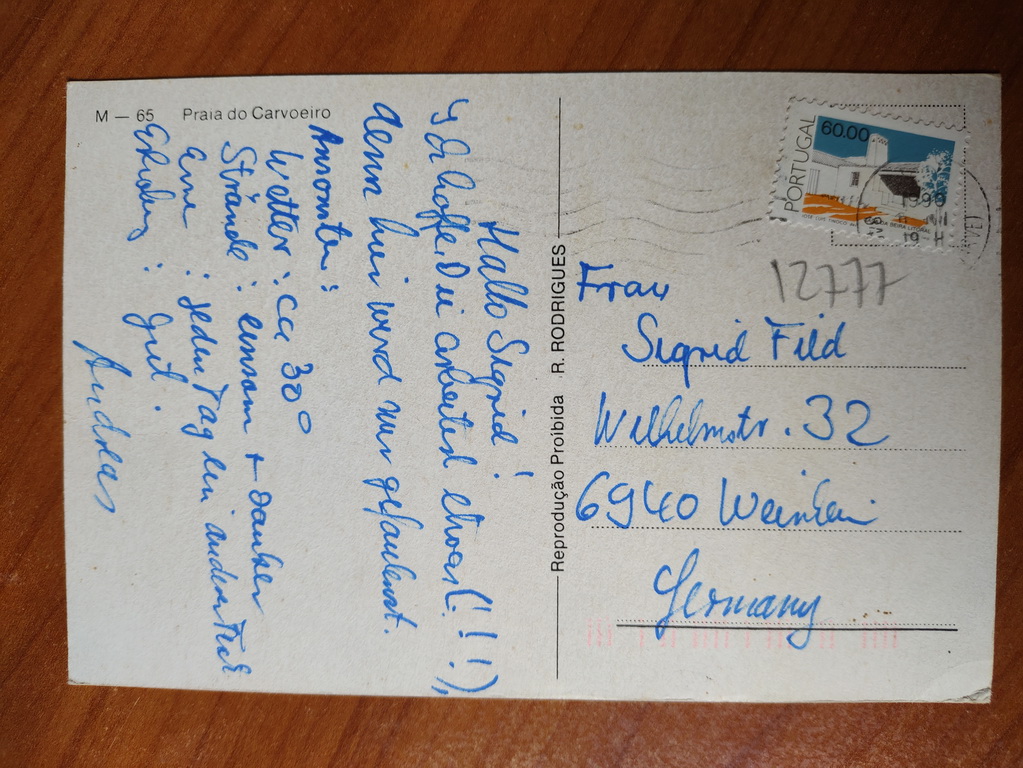 M — 65 Praia do Carvoeiro
Hallo Sigrid!
Ich hoffe, Du arbeitest etwas (!!!),
denn hier wird nur gefaulenzt.
Ansonsten:
Wetter: ca 30°
Strände: einsam +
: jeden Tag ein anderer
Erholung: gut.
Andreas
Reprodução Proibida R. RODRIGUES
PORTUGAL
60.00
19 H
12777
Frau
Sigrid Feld
Wilhelmstr. 32
6940 Weinheim
Germany